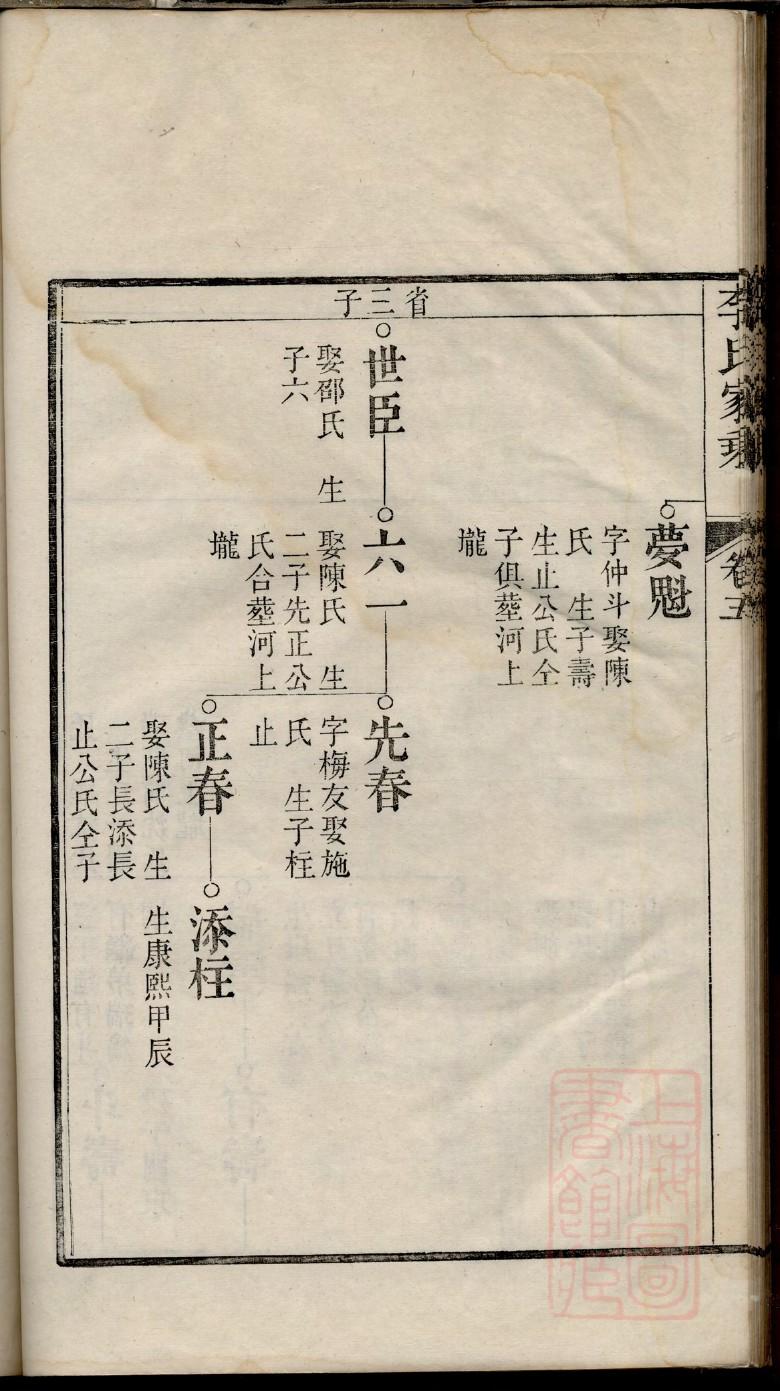 李氏家乘
卷五
省三子
夢魁
字仲斗娶陳
氏　生子壽
生止公氏仝
子俱塟河上
壠
世臣
娶邵氏　生
子六
六一
娶陳氏　生
二子先正公
氏合塟河上
壠
先春
字梅友娶施
氏　生子柱
止
正春
娶陳氏　生
二子長添長
止公氏仝子
添柱
生康熙甲辰
上海圖
書館藏